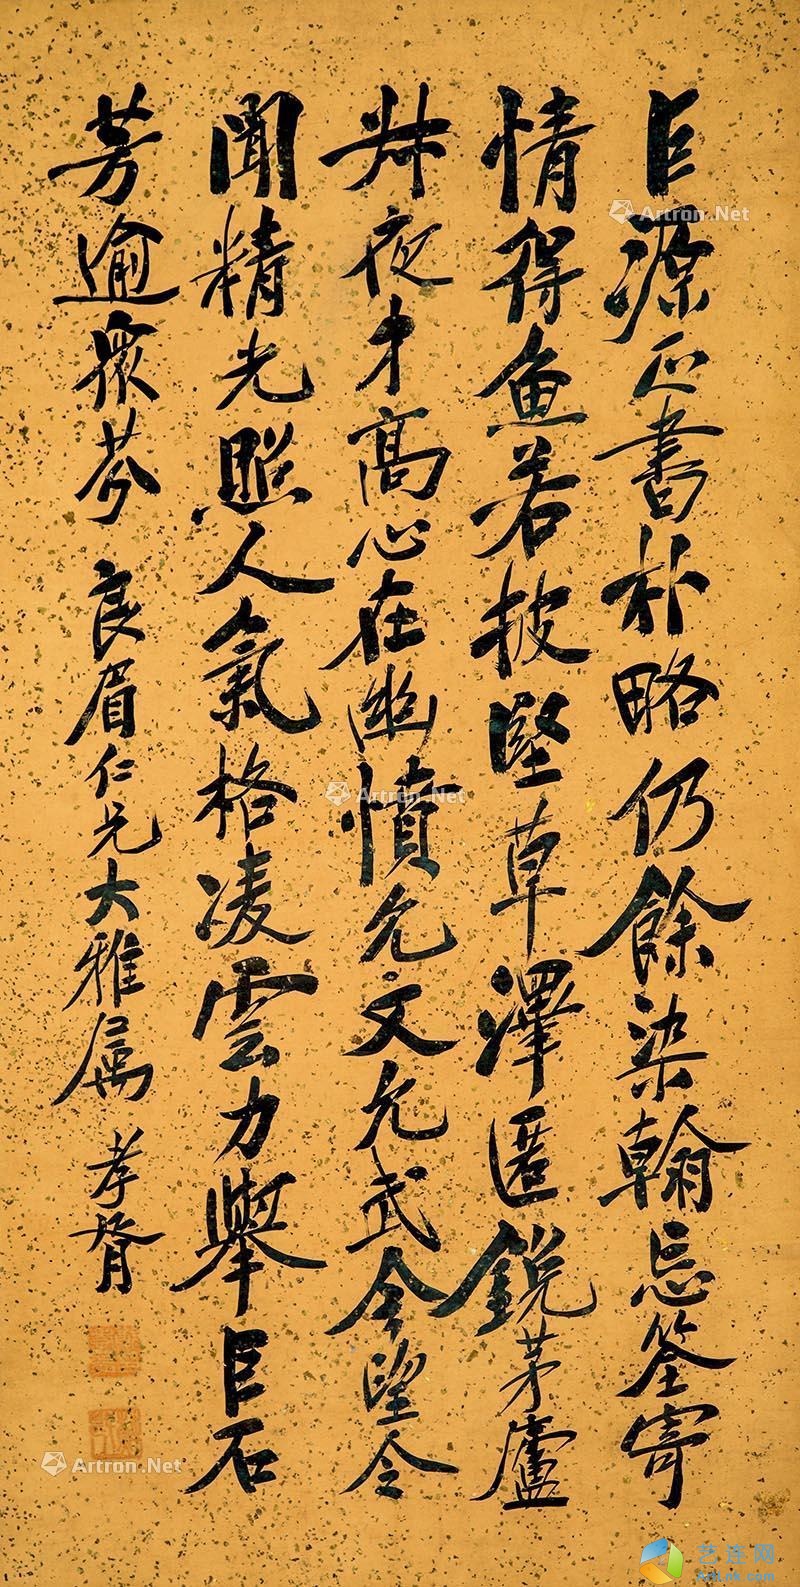 巨源正書朴略仍餘染翰忘筌寄
情得魚若披堅草澤匿銳茅廬
殊夜才高心在幽憤允文允武令望令
聞精光照人氣格凌雲力舉巨石
芳逾眾芬 良眉仁兄大雅属 孝胥
Artron.Net
Artron.Net
Artron.Net
艺连网